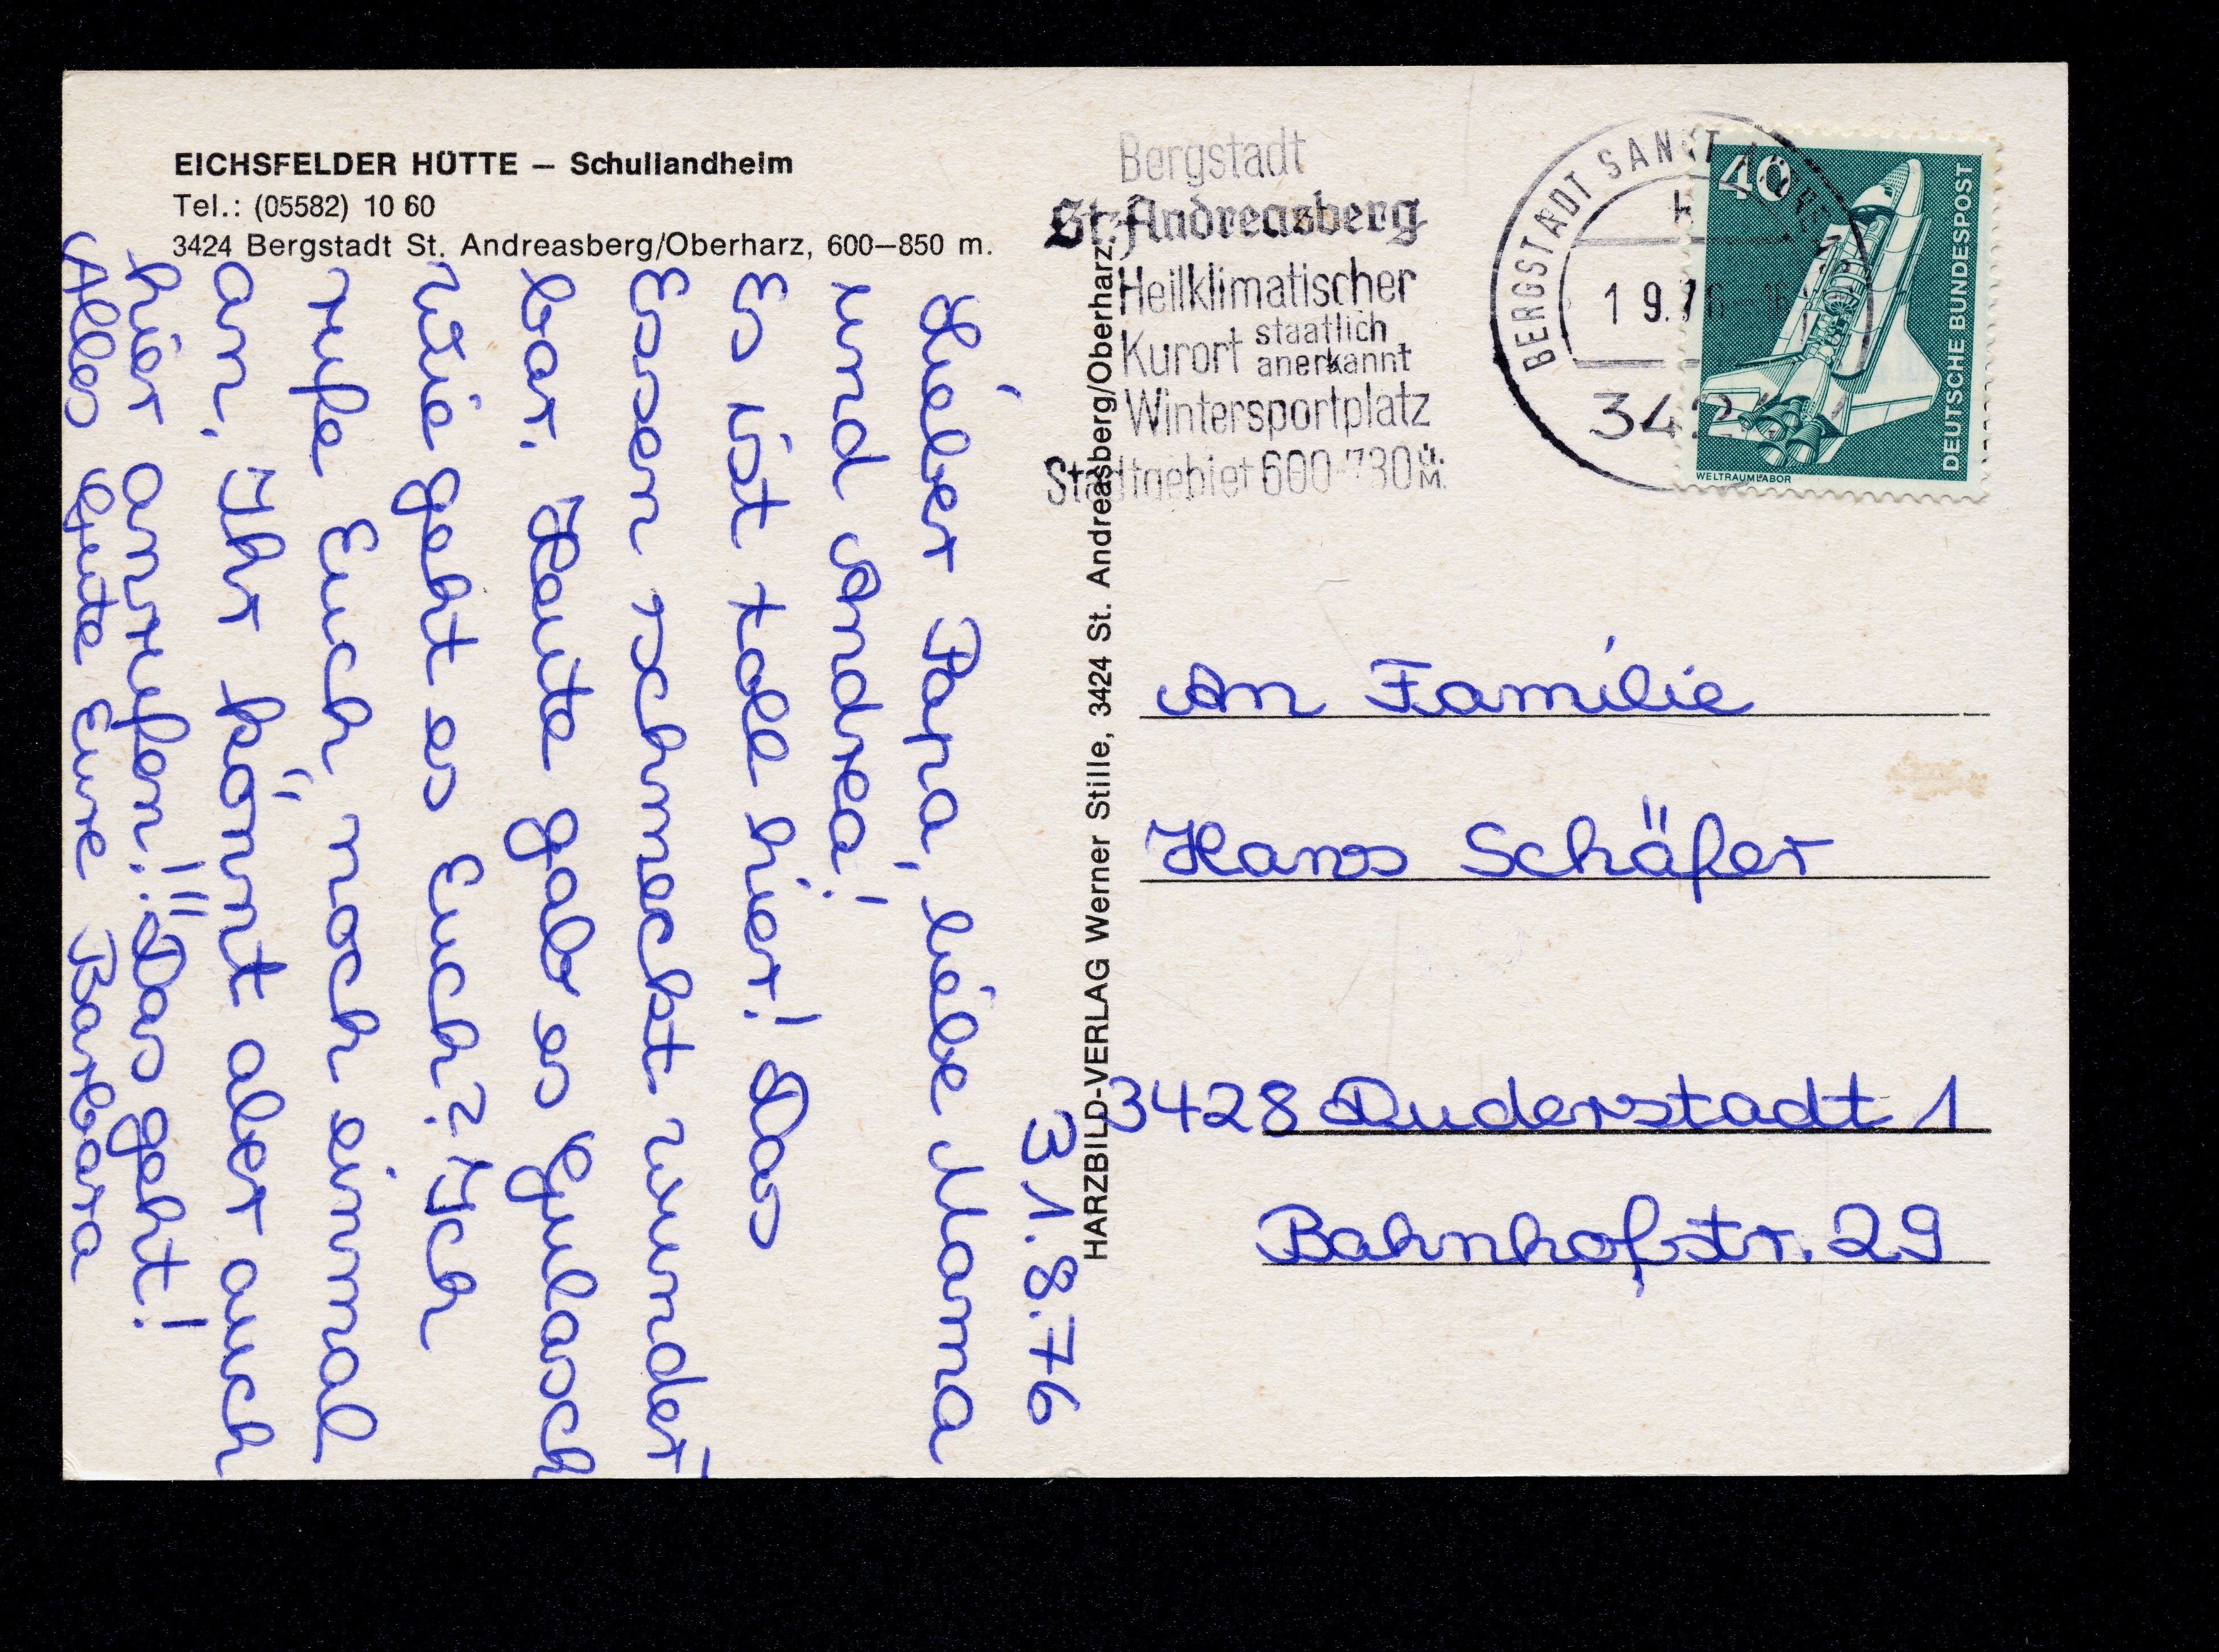 EICHSFELDER HÜTTE – Schullandheim
Tel.: (05582) 10 60
3424 Bergstadt St. Andreasberg/Oberharz, 600–850 m.
31.8.76
Lieber Papa, liebe Mama
und Andrea!
Es ist tolle hier! Das
Essen schmeckt wunder
bar. Heute gab es Gulasch
Wie geht es Euch? Ich
rufe Euch noch einmal
an. Ihr könnt aber auch
hier anrufen!!! Das geht!
Alles Gute Eure Barbara
HARZBILD-VERLAG Werner Stille, 3424 St. Andreasberg/Oberharz
Bergstadt
St. Andreasberg
Heilklimatischer
Kurort staatlich
anerkannt
Wintersportplatz
Stadtgebiet 600-730 ü.
M.
BERGSTADT SANKT ANDREASBERG
1 9.76-16
342
40
DEUTSCHE BUNDESPOST
WELTRAUMLABOR
An Familie
Hans Schäfer
3428 Duderstadt 1
Bahnhofstr. 29